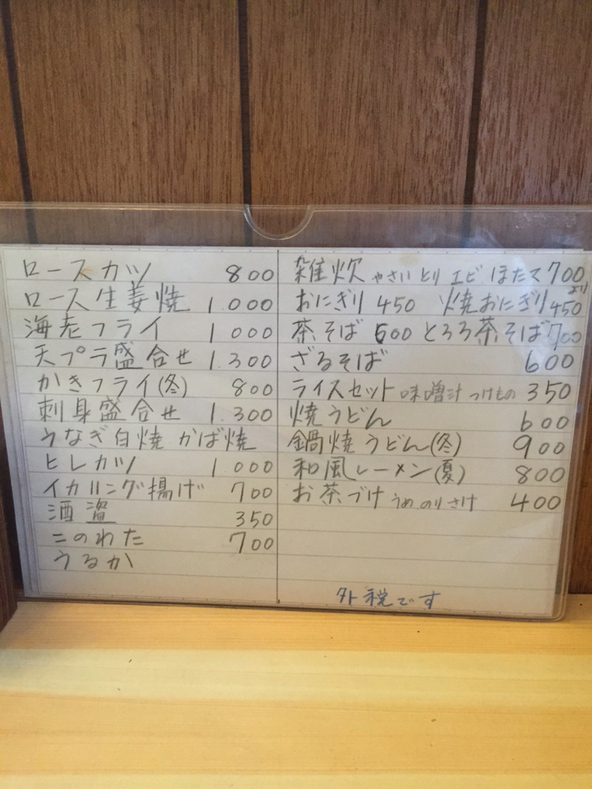 ロースカツ 800
ロース生姜焼 1.000
海老フライ 1000
天プラ盛合せ 1.300
かきフライ(冬) 800
刺身盛合せ 1.300
うなぎ白焼 かば焼
ヒレカツ 1000
イカリング揚げ 700
酒盗 350
このわた 700
うるか
雑炊 やさい とり エビ ほたて 700より
おにぎり 450 焼おにぎり 450
茶そば 600 とろろ茶そば 700
ざるそば 600
ライスセット 味噌汁 つけもの 350
焼うどん 600
鍋焼うどん(冬) 900
和風レーメン(夏) 800
お茶づけ うめ のり さけ 400
外税です